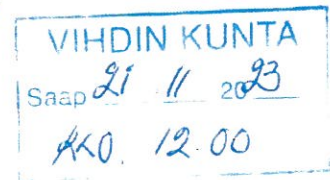 VIHDIN KUNTA
Saap 21 11 2023
KLO. 12.00